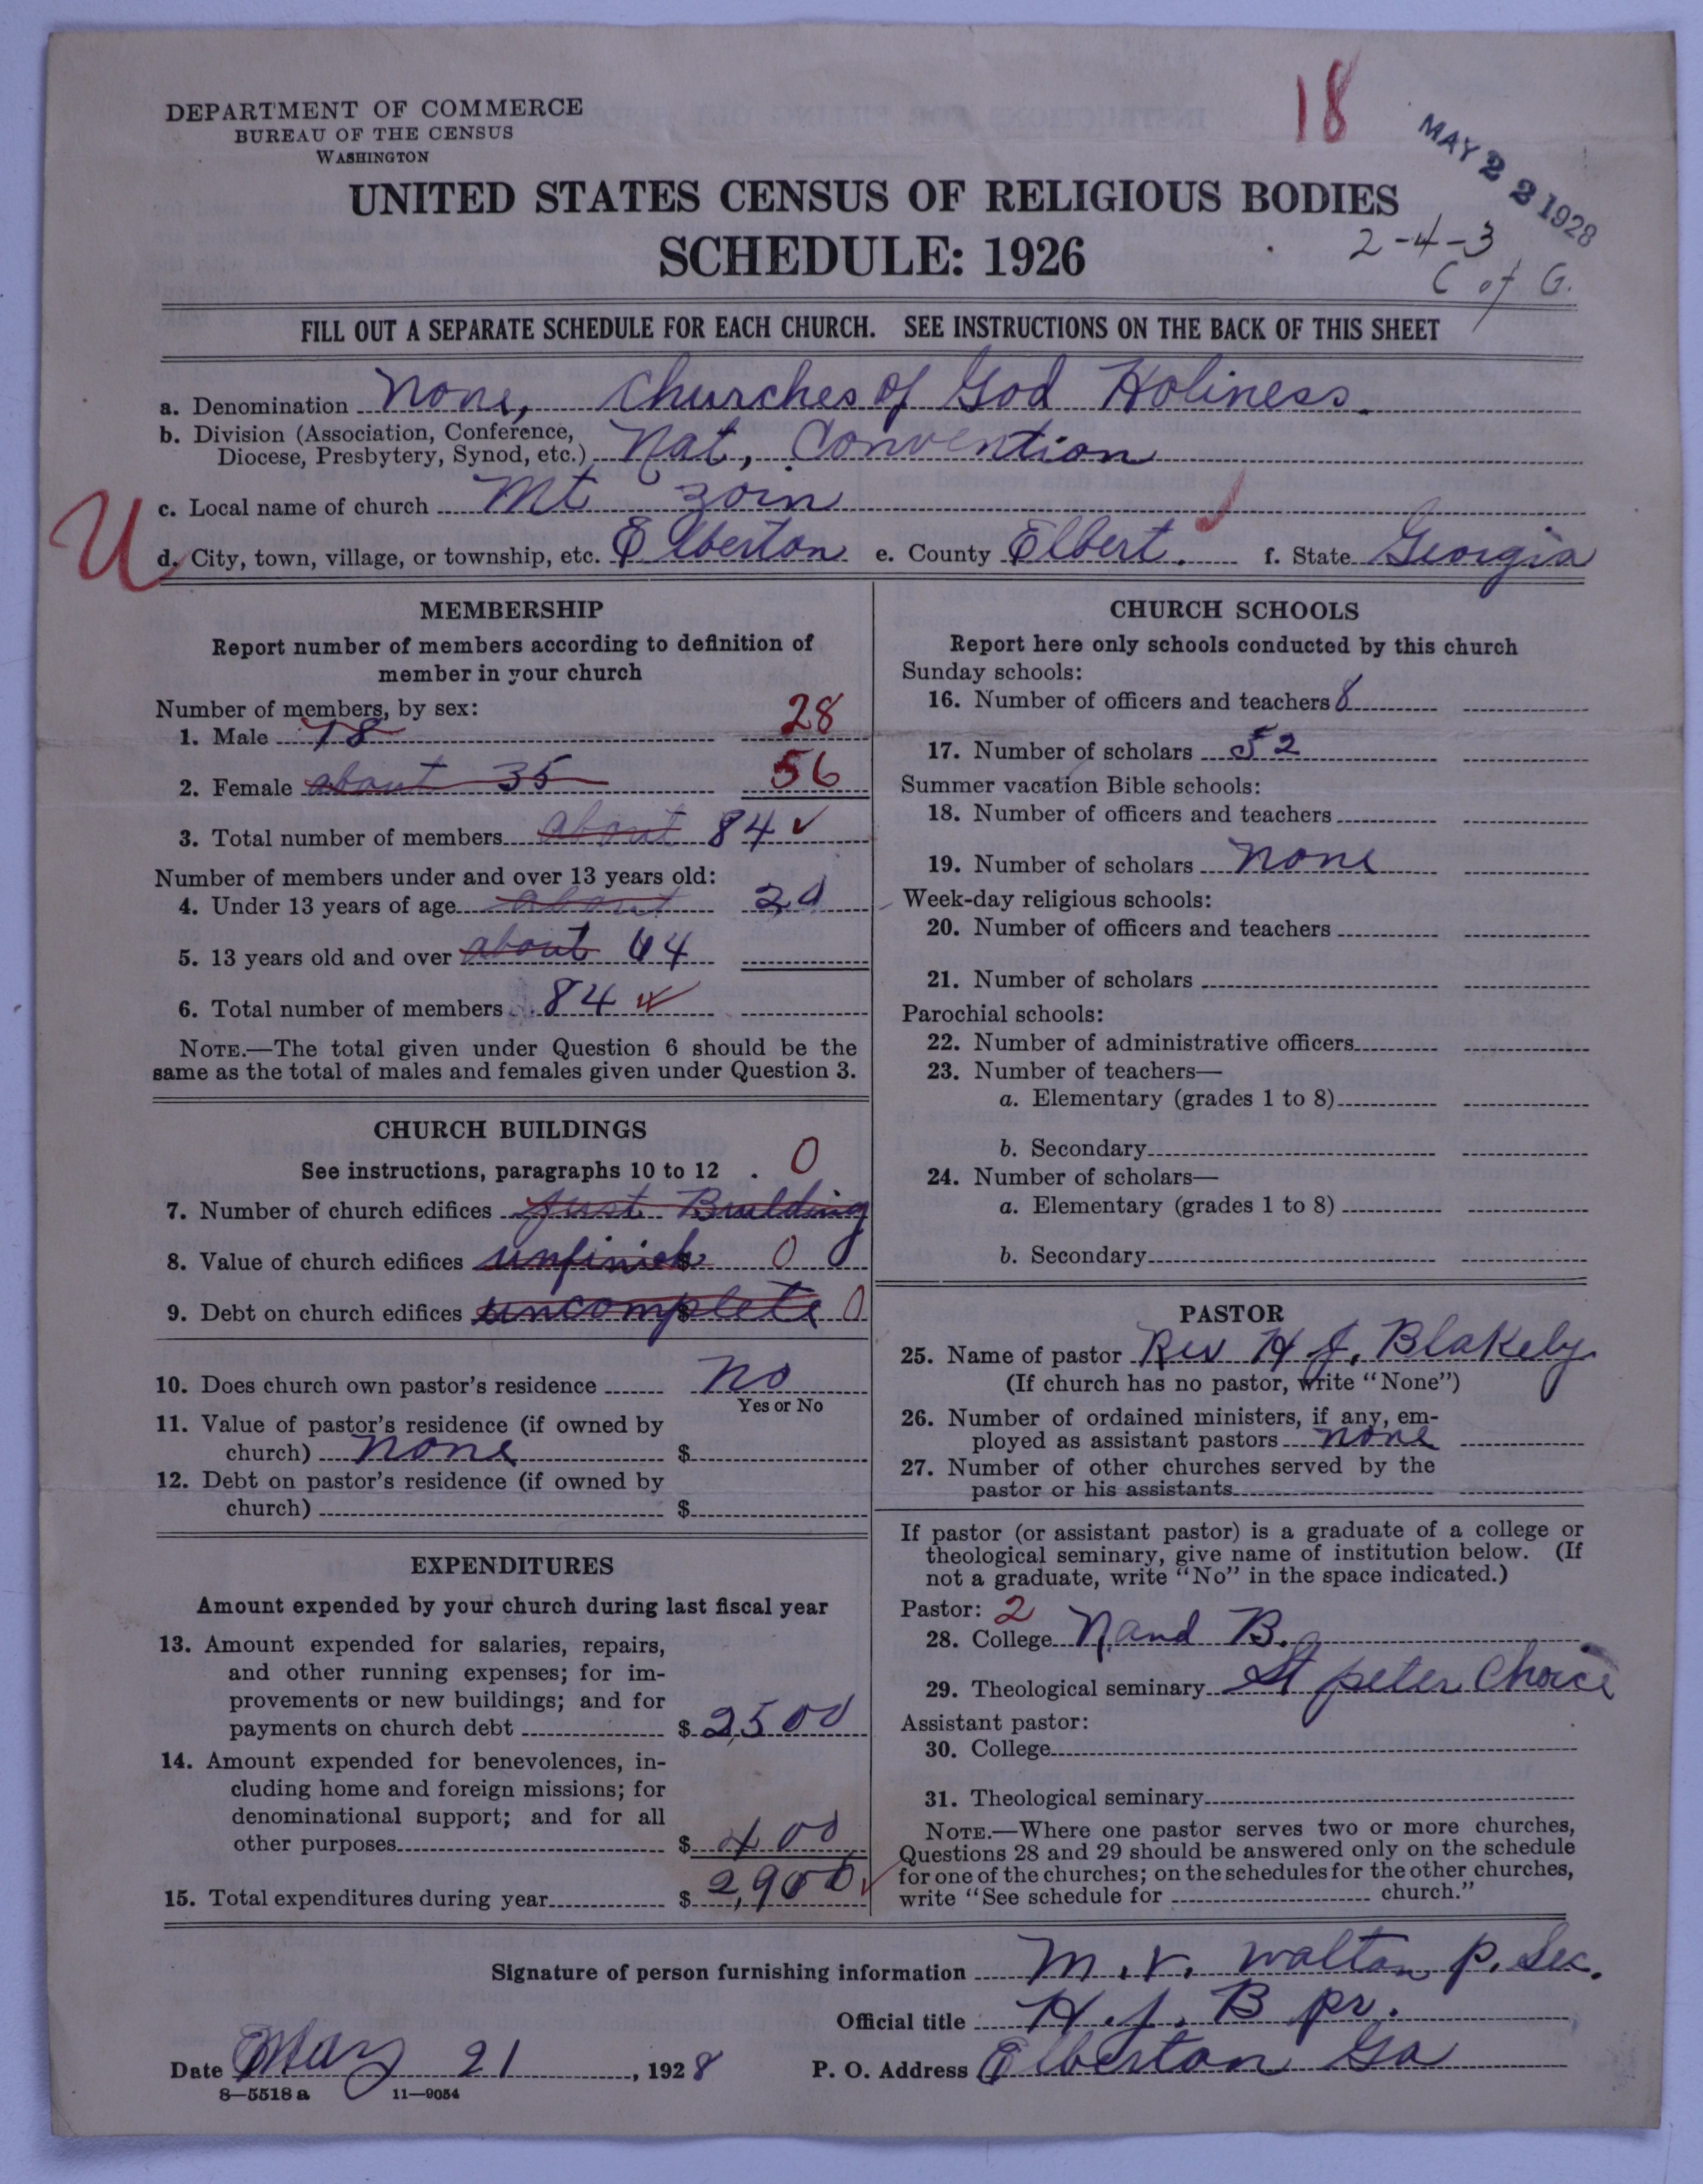 18
MAY 22 1928
DEPARTMENT OF COMMERCE
BUREAU OF THE CENSUS
WASHINGTON
UNITED STATES CENSUS OF RELIGIOUS BODIES
SCHEDULE: 1926
2-4-3
C of G.
FILL OUT A SEPARATE SCHEDULE FOR EACH CHURCH. SEE INSTRUCTIONS ON THE BACK OF THIS SHEET
a. Denomination None, Churches of God Holiness.
b. Division (Association, Conference,
Diocese, Presbytery, Synod, etc.) Nat, Convention
c. Local name of church Mt zoin
U
d. City, town, village, or township, etc. Elberton e. County Elbert. f. State Georgia
MEMBERSHIP
Report number of members according to definition of
member in your church
Number of members, by sex:
1. Male 18 28
2. Female about 35 56
3. Total number of members about 84 ✓
Number of members under and over 13 years old:
4. Under 13 years of age about 20
5. 13 years old and over about 64
6. Total number of members 84 ✓
NOTE.—The total given under Question 6 should be the
same as the total of males and females given under Question 3.
CHURCH BUILDINGS
See instructions, paragraphs 10 to 12 . 0
7. Number of church edifices just Building
8. Value of church edifices unfinish $ 0
9. Debt on church edifices uncomplete $ 0
10. Does church own pastor's residence no
Yes or No
11. Value of pastor's residence (if owned by
church) none $
12. Debt on pastor's residence (if owned by
church) $
EXPENDITURES
Amount expended by your church during last fiscal year
13. Amount expended for salaries, repairs,
and other running expenses; for im-
provements or new buildings; and for
payments on church debt $ 2,500
14. Amount expended for benevolences, in-
cluding home and foreign missions; for
denominational support; and for all
other purposes $ 400
15. Total expenditures during year $ 2,900 ✓
CHURCH SCHOOLS
Report here only schools conducted by this church
Sunday schools:
16. Number of officers and teachers 8
17. Number of scholars 52
Summer vacation Bible schools:
18. Number of officers and teachers
19. Number of scholars none
Week-day religious schools:
20. Number of officers and teachers
21. Number of scholars
Parochial schools:
22. Number of administrative officers
23. Number of teachers—
a. Elementary (grades 1 to 8)
b. Secondary
24. Number of scholars—
a. Elementary (grades 1 to 8)
b. Secondary
PASTOR
25. Name of pastor Rev H. J. Blakely
(If church has no pastor, write "None")
26. Number of ordained ministers, if any, em-
ployed as assistant pastors none
27. Number of other churches served by the
pastor or his assistants
If pastor (or assistant pastor) is a graduate of a college or
theological seminary, give name of institution below. (If
not a graduate, write "No" in the space indicated.)
Pastor: 2
28. College N and B.
29. Theological seminary St peter Choice
Assistant pastor:
30. College
31. Theological seminary
NOTE.—Where one pastor serves two or more churches,
Questions 28 and 29 should be answered only on the schedule
for one of the churches; on the schedules for the other churches,
write "See schedule for church."
Signature of person furnishing information M. V. Walton P. Sec.
Official title H. J. B pr.
Date May 21, 1928 P. O. Address Elberton Ga
8—5518 a 11—9054